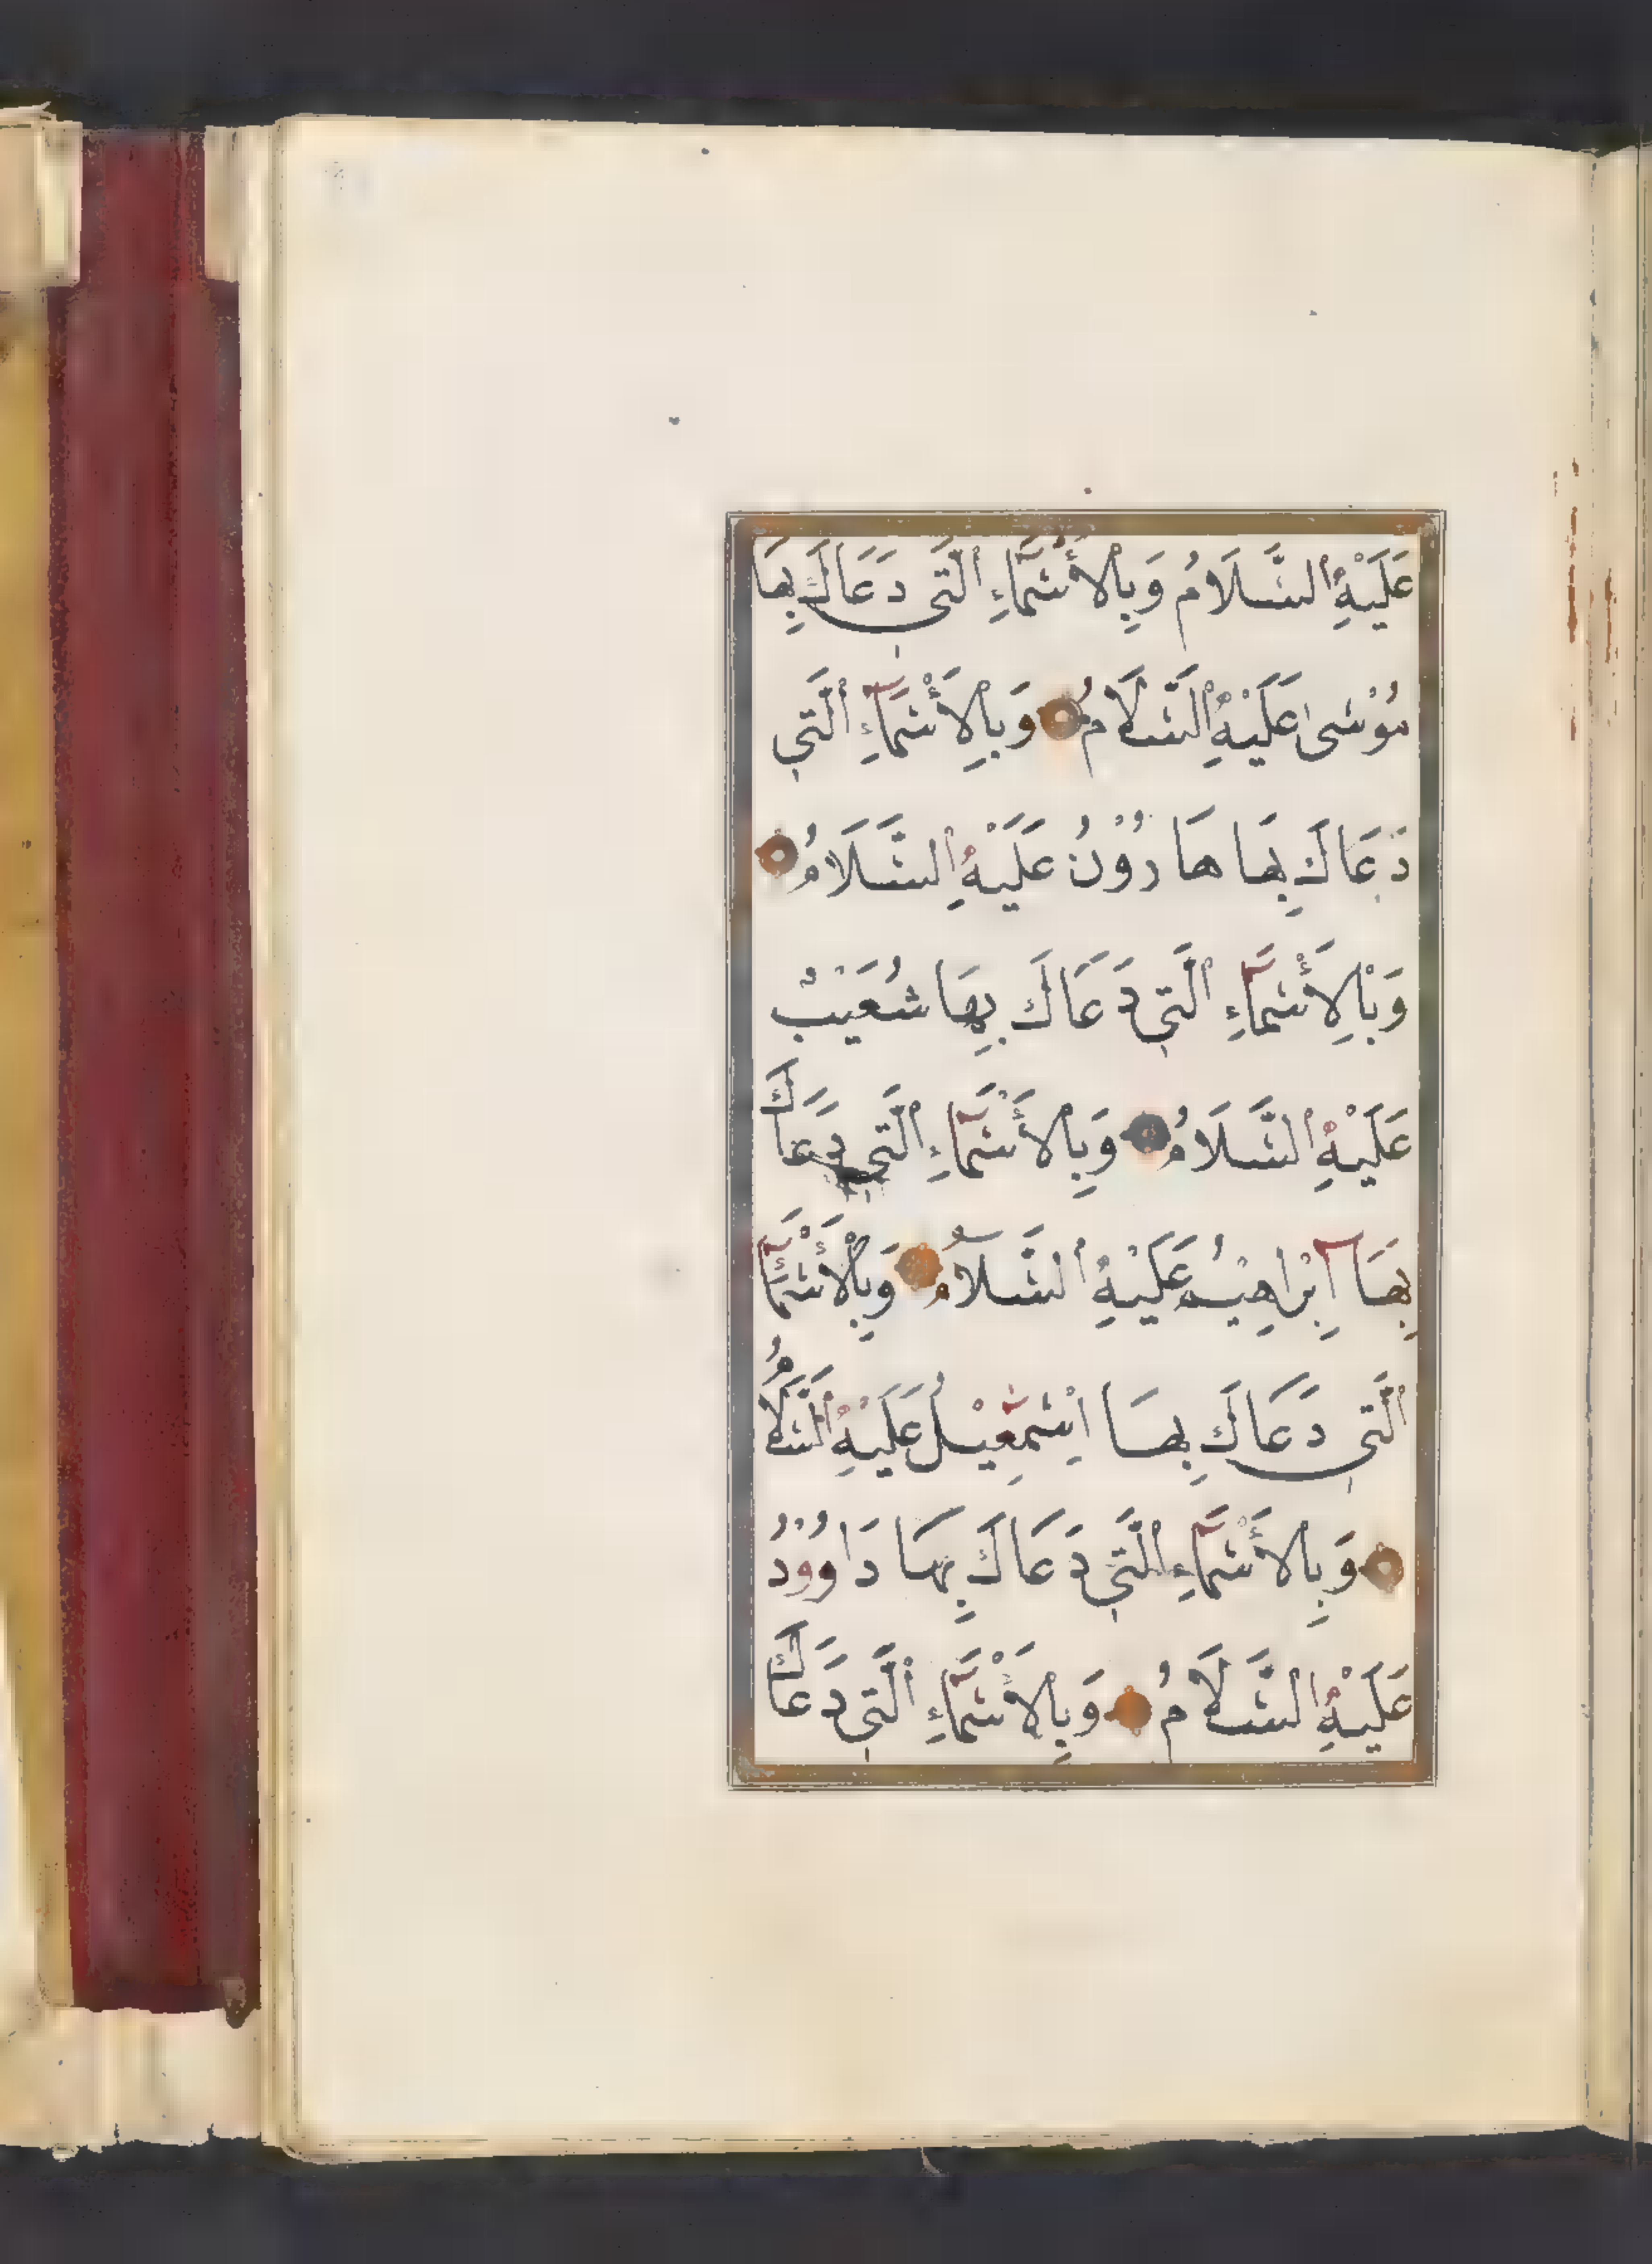 عَلَيْهِ السَّلَامُ وَبِالْأَسْمَآءِ الَّتِي دَعَاكَ بِهَا
مُوْسٰى عَلَيْهِ السَّلَامُ وَبِالْأَسْمَآءِ الَّتِي
دَعَاكَ بِهَا هَارُوْنُ عَلَيْهِ السَّلَامُ
وَبِالْأَسْمَآءِ الَّتِي دَعَاكَ بِهَا شُعَيْبْ
عَلَيْهِ السَّلَامُ وَبِالْأَسْمَآءِ الَّتِي دَعَاكَ
بِهَآ اِبْرَاهِيْمُ عَلَيْهِ السَّلَامُ وَبِالْأَسْمَآءِ
الَّتِي دَعَاكَ بِهَا اِسْمٰعِيْلُ عَلَيْهِ السَّلَامُ
وَبِالْأَسْمَآءِ الَّتِي دَعَاكَ بِهَا دَاوُوْدُ
عَلَيْهِ السَّلَامُ وَبِالْأَسْمَآءِ الَّتِي دَعَاكَ